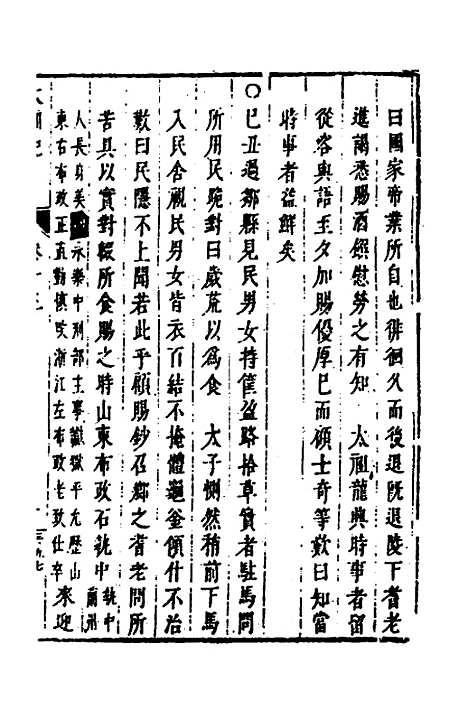 曰國家帝業所自也徘徊久而後退既退陵下耆老
進謁悉賜酒饌慰勞之有知　太祖龍興時事者留
從容與語至夕加賜優厚已而顧士奇等歎曰知當
時事者益鮮矣
○己丑過鄒縣見民男女持筐盈路拾草實者駐馬問
所用民跪對曰歲荒以爲食　太子惻然稍前下馬
入民舍視民男女皆衣百結不掩體竈釜傾仆不治
歎曰民隱不上聞若此乎顧賜鈔召鄉之耆老問所
苦具以實對輟所食賜之時山東布政石執中執中
人長身美永樂中刑部主事讞獄平允歷山
東右布政正直勤慎改浙江左布政老致仕卒來迎